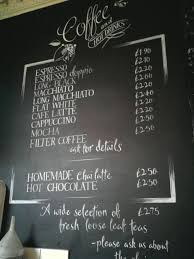 Coffee
and
HOT DRINKS
ESPRESSO £1.90
ESPRESSO doppio £2.10
LONG BLACK £2.10
MACCHIATO £2.20
LONG MACCHIATO £2.20
FLAT WHITE £2.40
CAFE LATTE £2.40
CAPPUCCINO £2.50
MOCHA £2.50
FILTER COFFEE
ask for details
HOMEMADE chai latte £2.50
HOT CHOCOLATE £2.50
A wide selection of £2.75
fresh loose leaf teas
-please ask us about